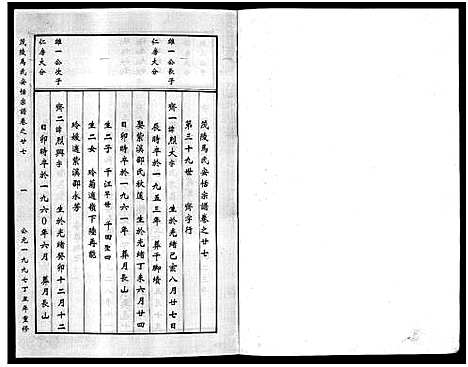 茂陵馬氏安恬宗譜卷之廿七
第三十九世 齊字行
雄一公長子
仁房大分
齊一 諱烈大字 生於光緒己亥八月廿七日
辰時卒於一九五三年 葬于腳墳
娶紫溪邵氏秋蓮 生於光緒丁未六月廿四
日卯時卒於一九六一年 葬月長山
生二子 千江早世 千田聖四
生二女 玲菊適嶺下陸再能
玲媛適紫溪邵水芳
雄一公次子
仁房大分
齊二 諱烈興字 生於光緒癸卯十二月十二
日卯時卒於一九六〇年六月 葬月長山
茂陵馬氏安恬宗譜卷之廿七 一 公元一九九七丁丑年重修